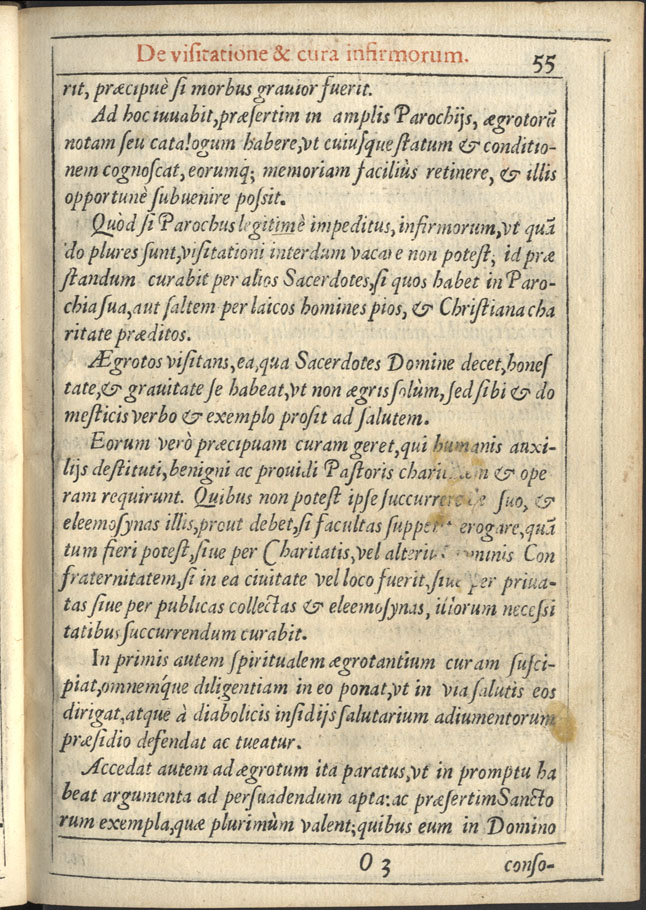 De viſitatione & cura infirmorum. 55
rit, præcipuè ſi morbus grauior fuerit.
Ad hoc iuuabit, præſertim in amplis Parochijs, ægrotorũ
notam ſeu catalogum habere, vt cuiuſque ſtatum & conditio-
nem cognoſcat, eorumq; memoriam faciliùs retinere, & illis
opportunè ſubuenire poſsit.
Quòd ſi Parochus legitimè impeditus, infirmorum, vt quã
do plures ſunt, viſitationi interdum vacare non poteſt; id præ
ſtandum curabit per alios Sacerdotes, ſi quos habet in Paro-
chia ſua, aut ſaltem per laicos homines pios, & Chriſtiana cha
ritate præditos.
Ægrotos viſitans, ea, qua Sacerdotes Domine decet, honeſ
tate, & grauitate ſe habeat, vt non ægris ſolùm, ſed ſibi & do
meſticis verbo & exemplo proſit ad ſalutem.
Eorum verò præcipuam curam geret, qui humanis auxi-
lijs deſtituti, benigni ac prouidi Paſtoris & ope
ram requirunt. Quibus non poteſt ipſe ſuccurrere de ſuo, &
eleemoſynas illis, prout debet, ſi facultas erogare, quã
tum fieri poteſt, ſiue per Charitatis, vel Con
fraternitatem, ſi in ea ciuitate vel loco fuerit, ſiue per priua-
tas ſiue per publicas collectas & eleemoſynas, illorum neceſsi
tatibus ſuccurrendum curabit.
In primis autem ſpiritualem ægrotantium curam ſuſci-
piat, omnemq́ue diligentiam in eo ponat, vt in via ſalutis eos
dirigat, atque à diabolicis inſidijs ſalutarium adiumentorum
præſidio defendat ac tueatur.
Accedat autem ad ægrotum ita paratus, vt in promptu ha
beat argumenta ad perſuadendum apta: ac præſertim Sancto
rum exempla, quæ plurimùm valent; quibus eum in Domino
O 3 conſo-